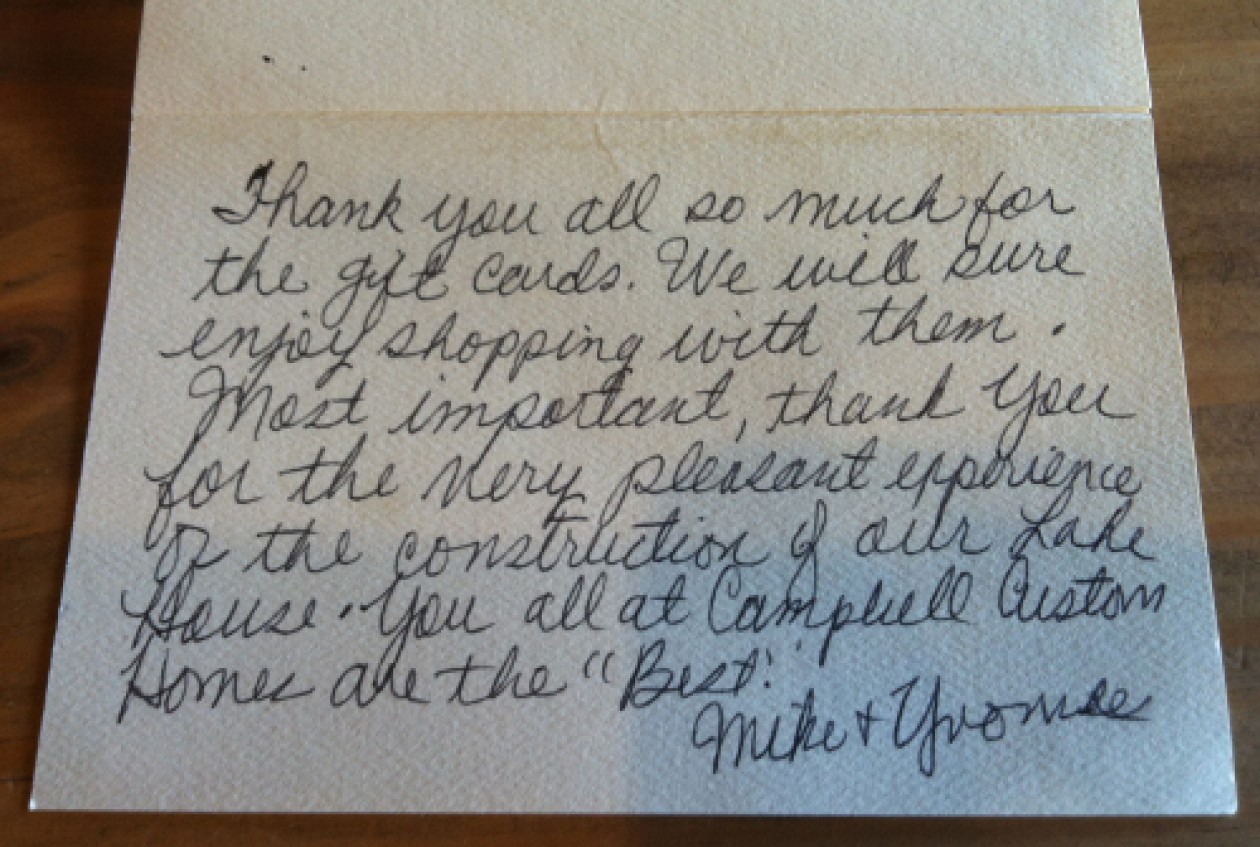 Thank you all so much for
the gift cards. We will sure
enjoy shopping with them.
Most important, thank you
for the very pleasant experience
of the construction of our Lake
House. You all at Campbell Custom
Homes are the "Best."
Mike + Yvonne